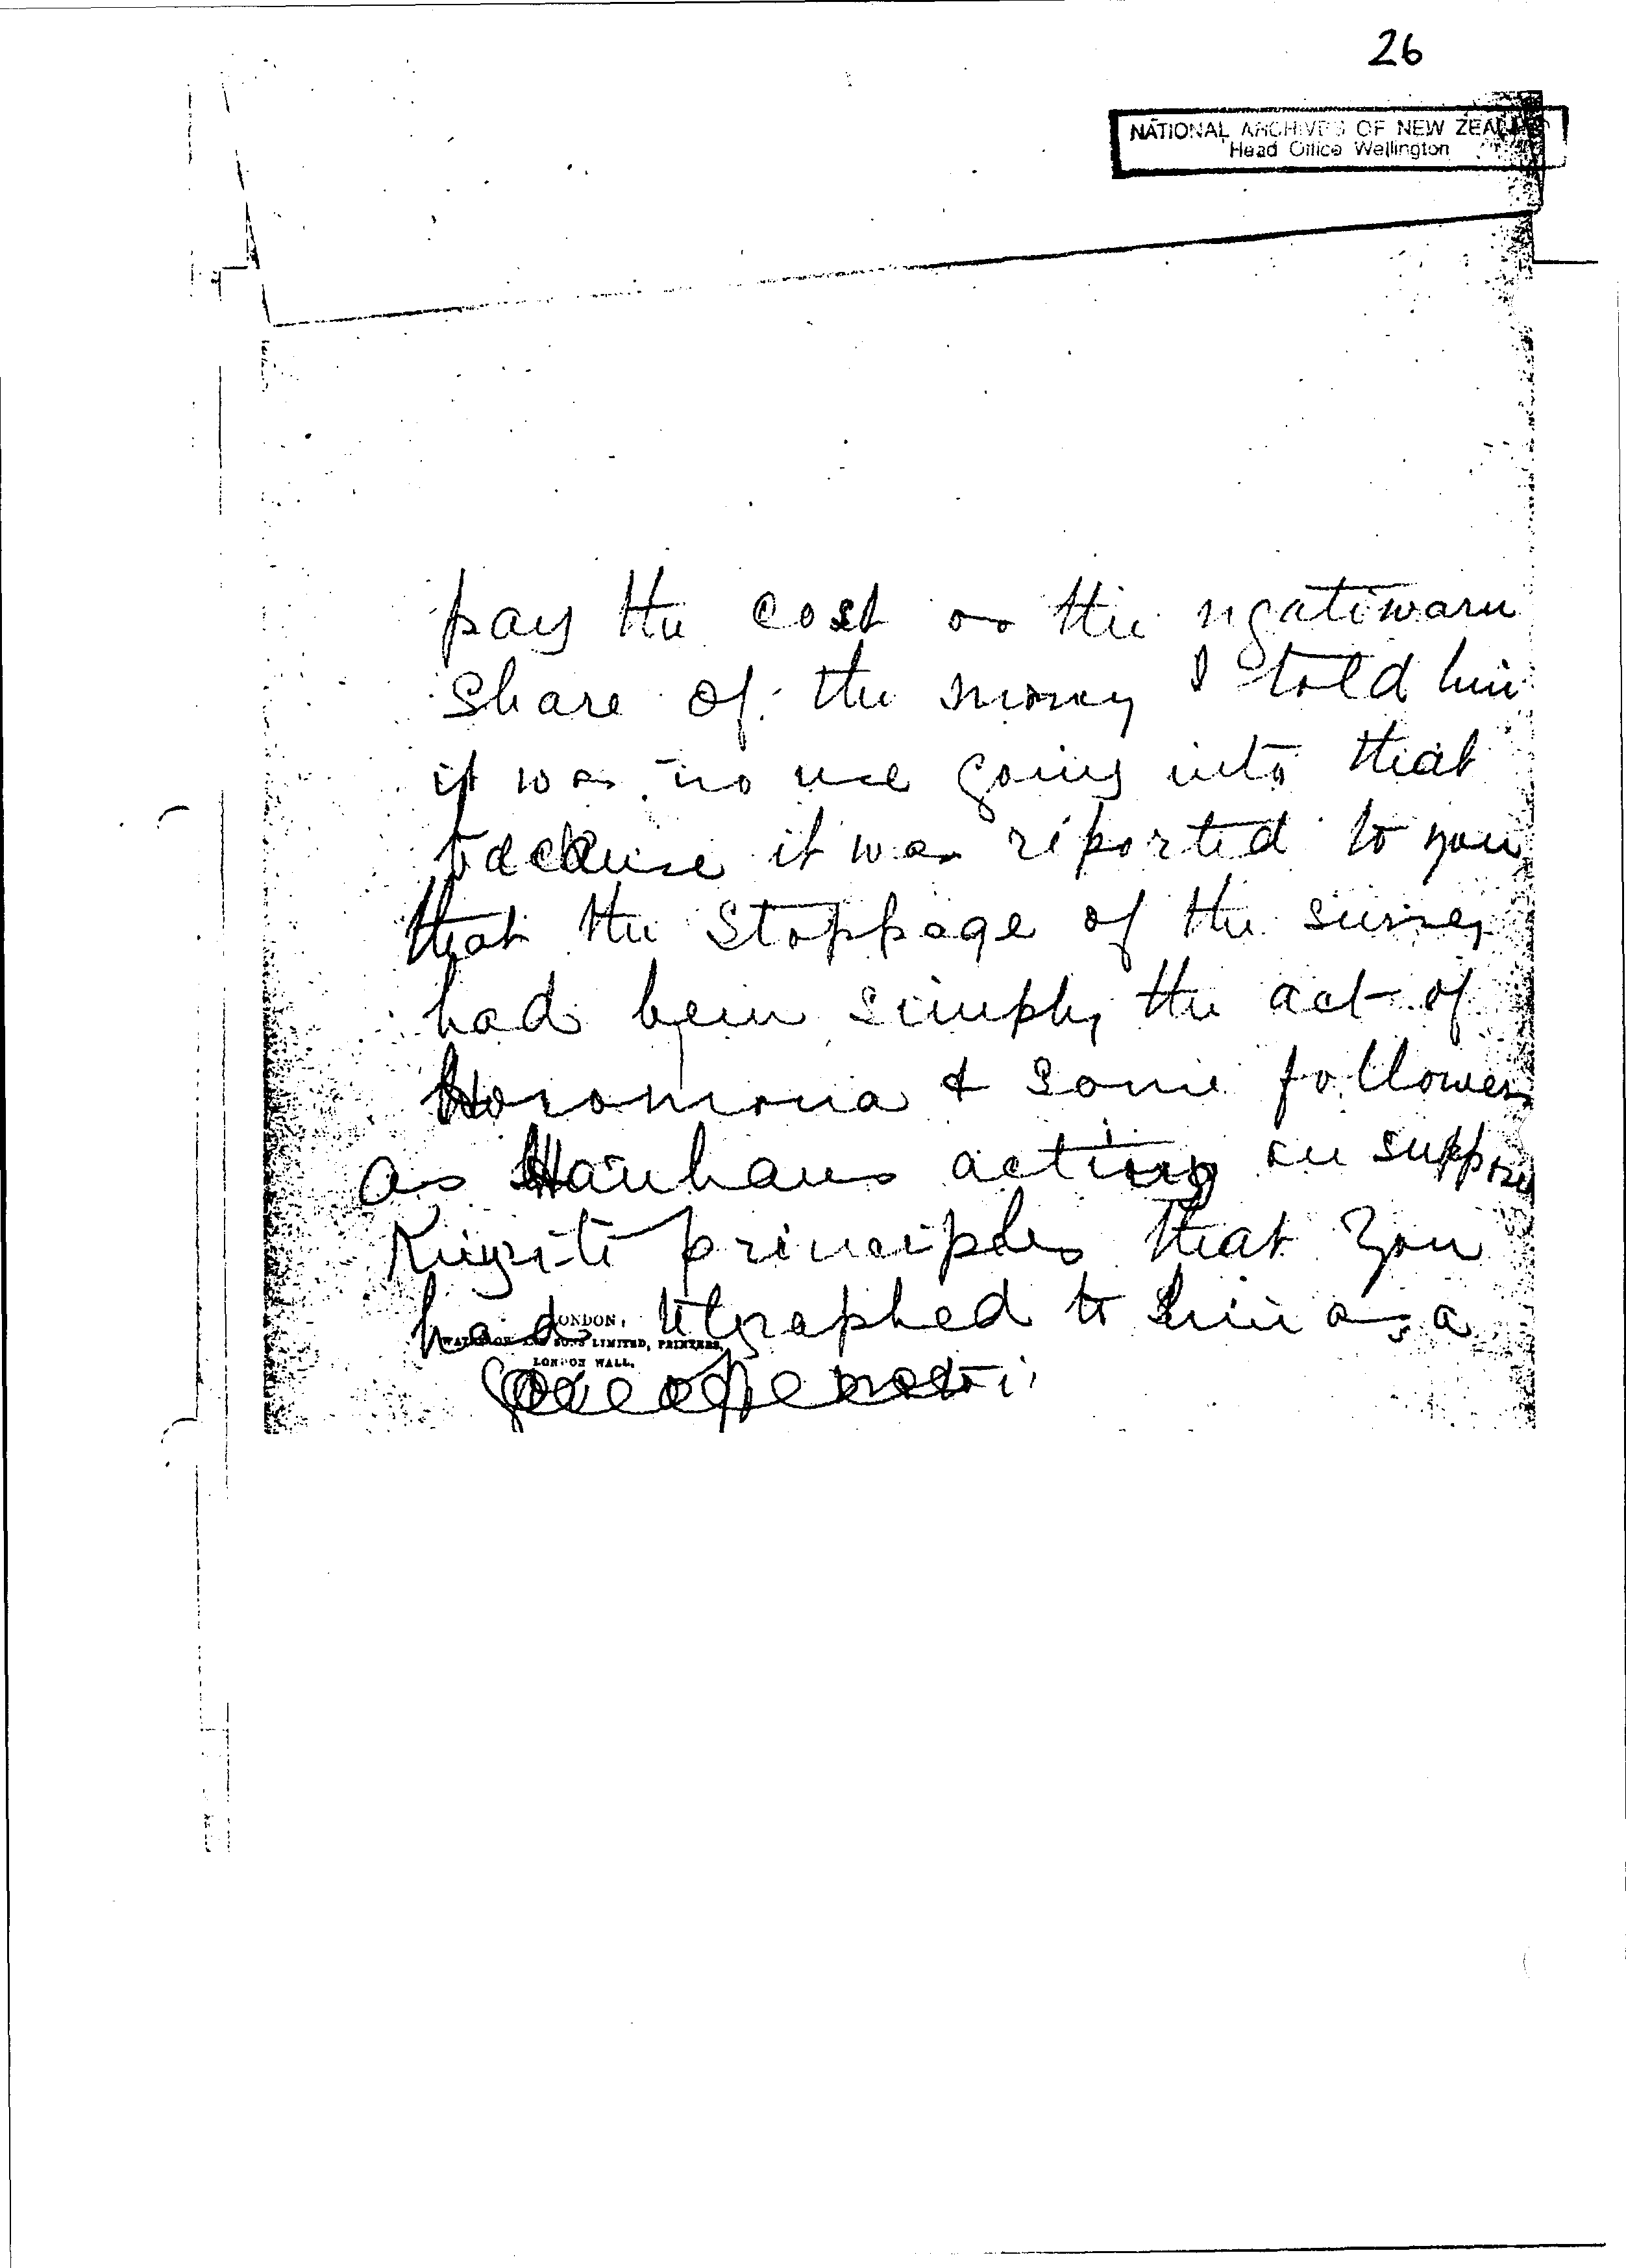 26
NATIONAL ARCHIVES OF NEW ZEALAND
Head Office Wellington
pay the cost or the ngatiwaru
share of the money I told him
it was no use going into that
because it was reported to you
that the stoppage of the survey
had been simply the act of
Horomona & some followers
as Hauhaus acting on suppo
Kingite principles that you
had telegraphed to him as a
LONDON,
WATERLOW AND SONS LIMITED, PRINTERS,
LONDON WALL.